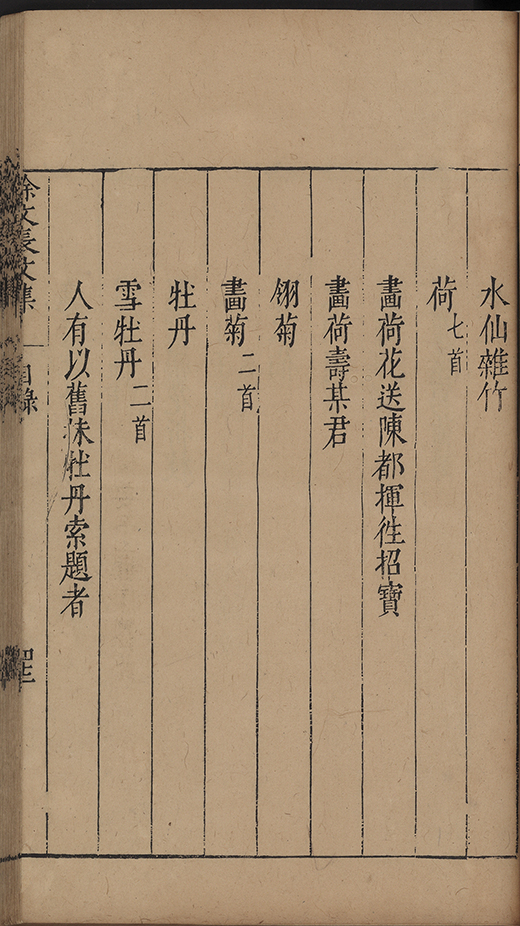 水仙雜竹
荷七首
畫荷花送陳都揮徃招寶
畫荷壽某君
翎菊
畫菊二首
牡丹
雪牡丹二首
人有以舊抹牡丹索題者
徐文長文集 目錄